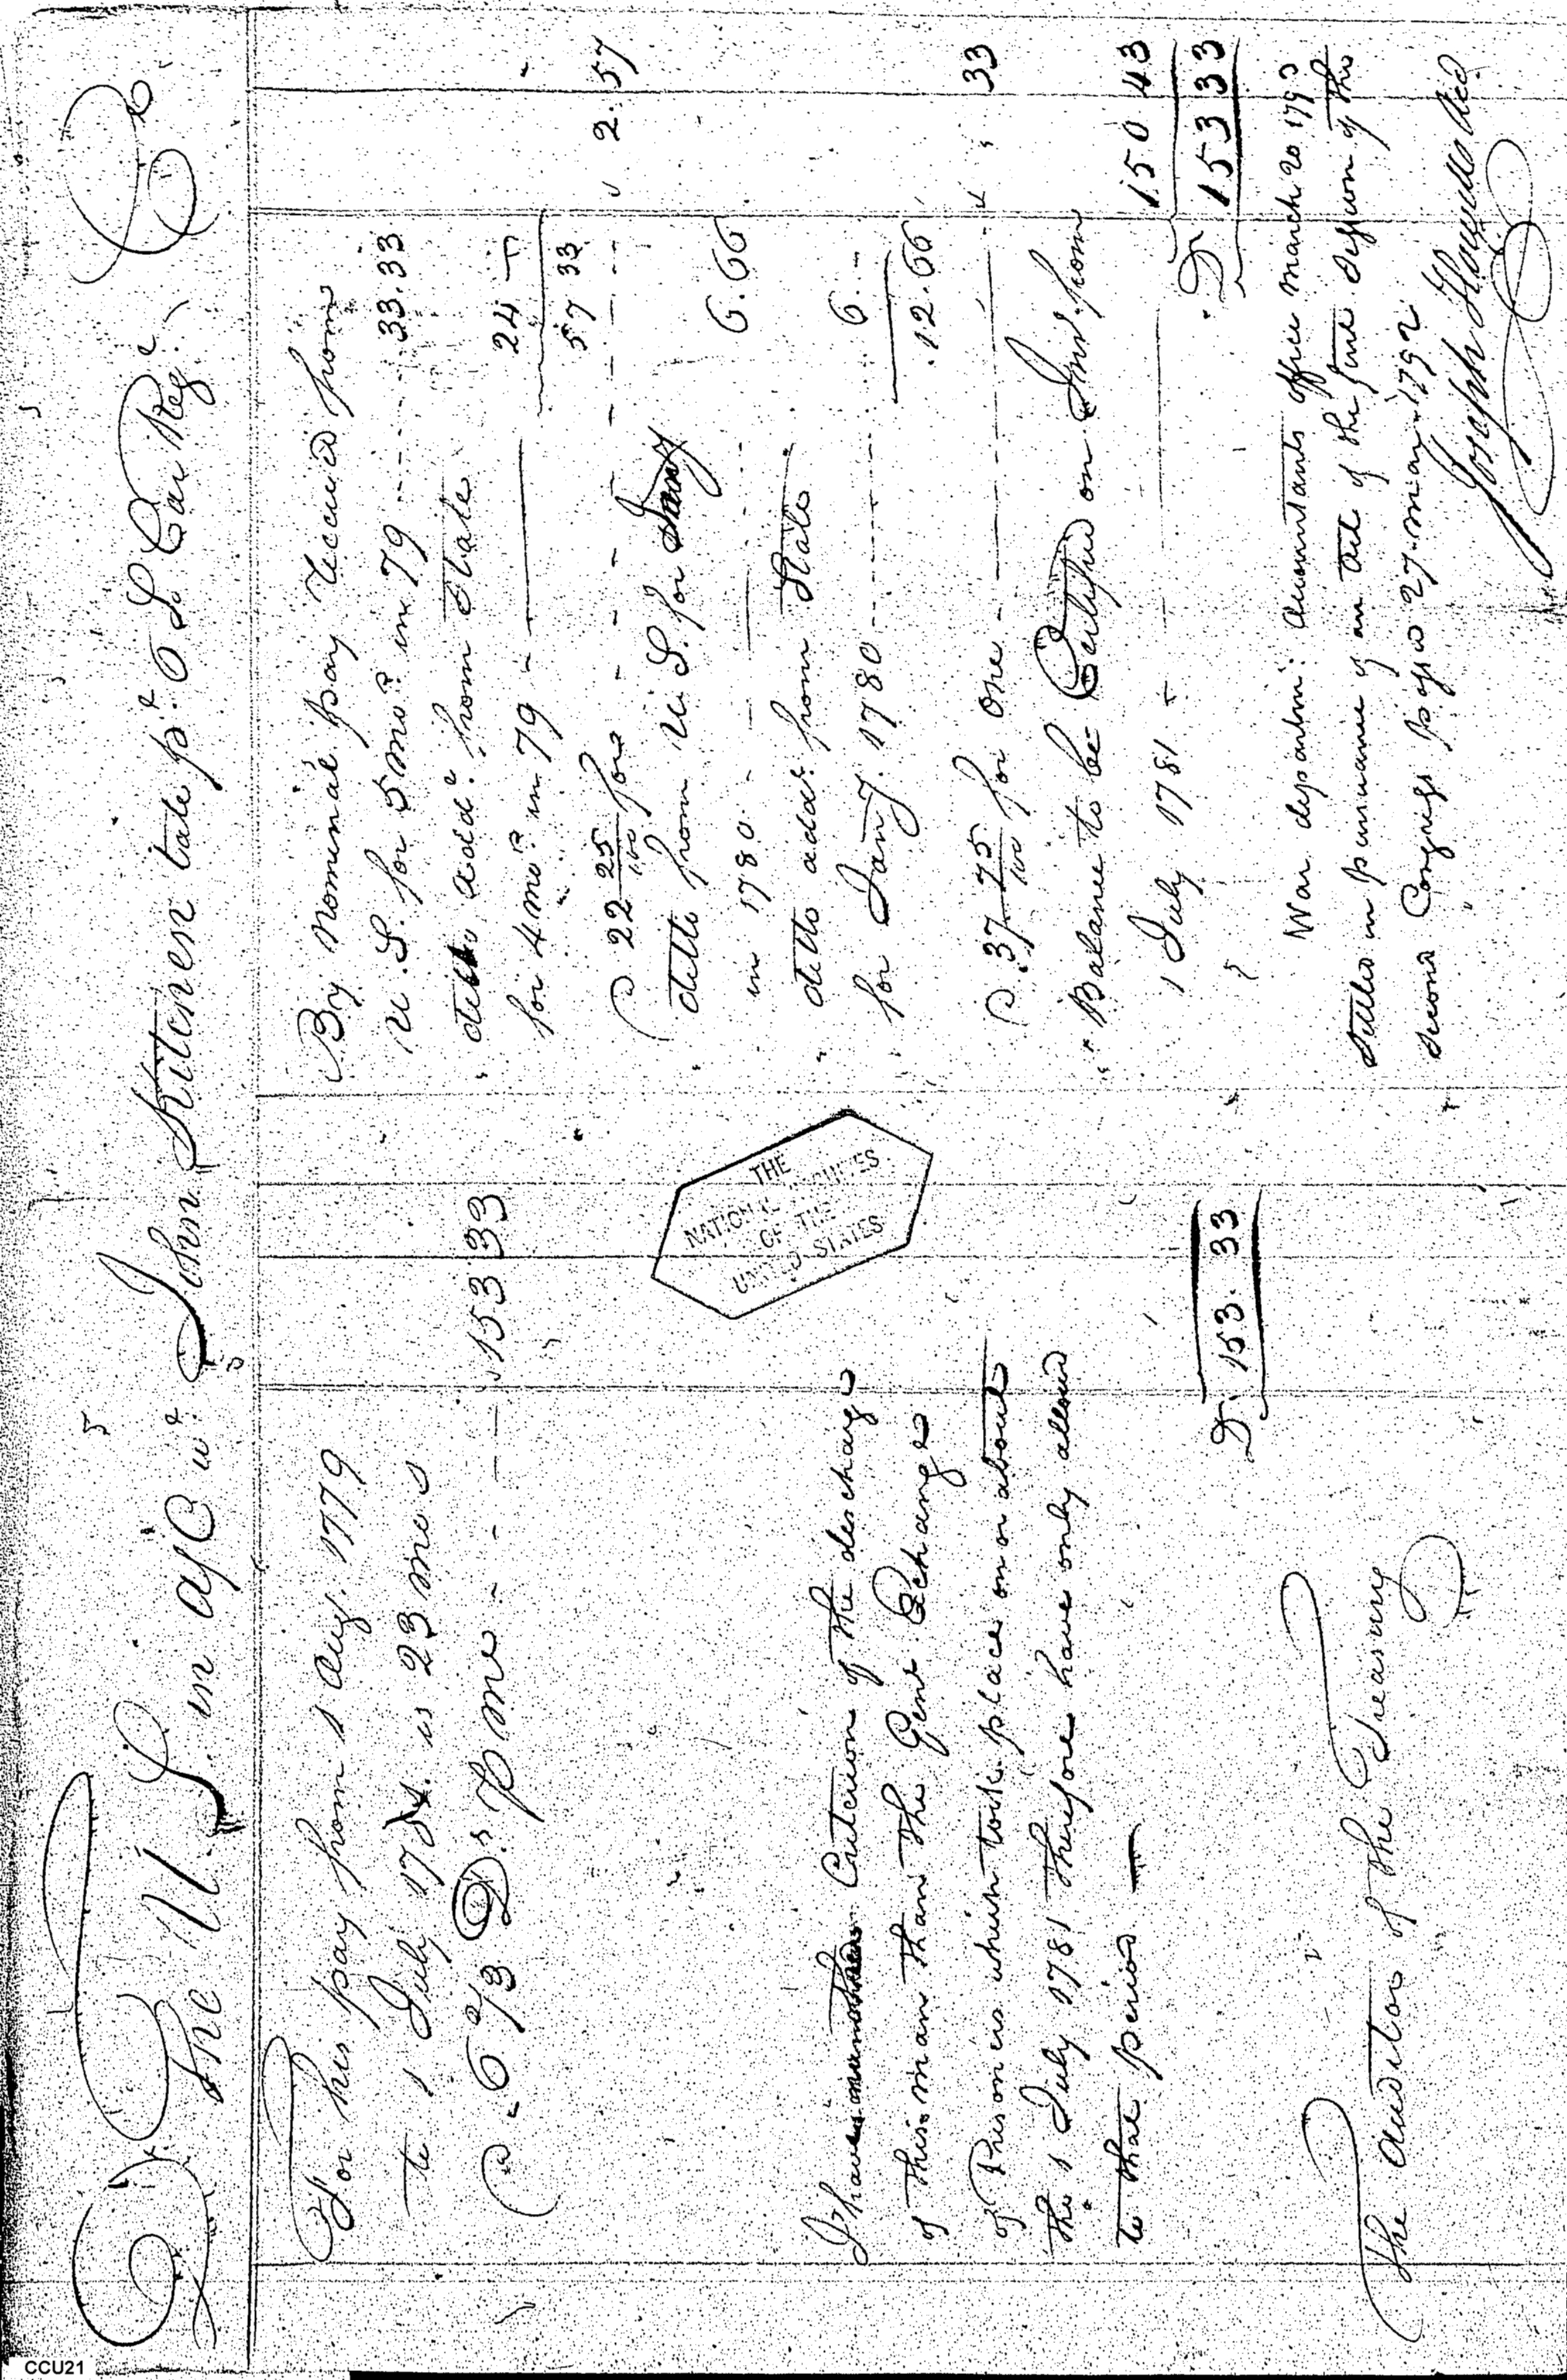 Dr The U.S. in a/c wt. John Kitchen late pt. 6 S. Car Regt. Cr
For his pay from 1 Aug. 1779
to 1 July 178 . is 23 mos
@ 6 2/3 Ds. p mo - - - 153 33
of the discharge
of this man than the Genl Exchange
of Prisoners which took place on or about
the 1 July 1781 therefore have only allowed
to that period —
D. 153. 33
The Auditor of the Treasury
By Nominal pay received from
U.S. for 5 mos. in 79 ---- 33.33
" ditto addl. from State
for 4 mos. in 79 - —— 24 -
57 33
@ 22 25/100 for - - - - - 2. 57
" ditto from U.S. for Jany
in 1780 - — - - - 6.66
" ditto addl. from State
for Jany. 1780 ------ 6. --
12.66
@ 37 75/100 for one - ——— 33
" Balance to be Certified on Int. from
1 July 1781 - —— 150 43
Dr 153 33
War departm: Accountants office March 20 1793
Settled in pursuance of an Act of the first Session of the
second Congress passed 27. may 1792
Joseph Howell
THE
NATIONAL ARCHIVES
OF THE
UNITED STATES
CCU21